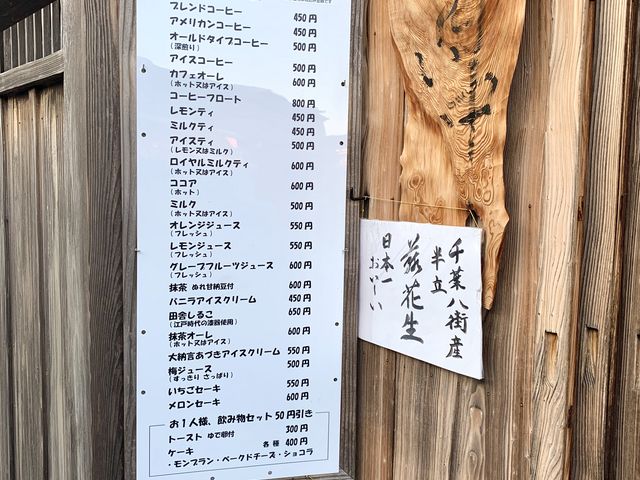 ブレンドコーヒー 450円
アメリカンコーヒー 450円
オールドタイプコーヒー 500円
（深煎り）
アイスコーヒー 500円
カフェオーレ 600円
（ホット又はアイス）
コーヒーフロート 800円
レモンティ 450円
ミルクティ 450円
アイスティ 500円
（レモン又はミルク）
ロイヤルミルクティ 600円
（ホット又はアイス）
ココア 600円
（ホット）
ミルク 500円
（ホット又はアイス）
オレンジジュース 550円
（フレッシュ）
レモンジュース 550円
（フレッシュ）
グレープフルーツジュース 600円
（フレッシュ）
抹茶 ぬれ甘納豆付 600円
バニラアイスクリーム 450円
田舎しるこ 650円
（江戸時代の漆器使用）
抹茶オーレ 600円
（ホット又はアイス）
大納言あづきアイスクリーム 550円
梅ジュース 500円
（すっきり さっぱり）
いちごセーキ 550円
メロンセーキ 600円
お1人様、飲み物セット50円引き
トースト ゆで卵付 300円
ケーキ 各種 400円
・モンブラン・ベークドチーズ・ショコラ
千葉八街産
半立
落花生
日本一
おいしい